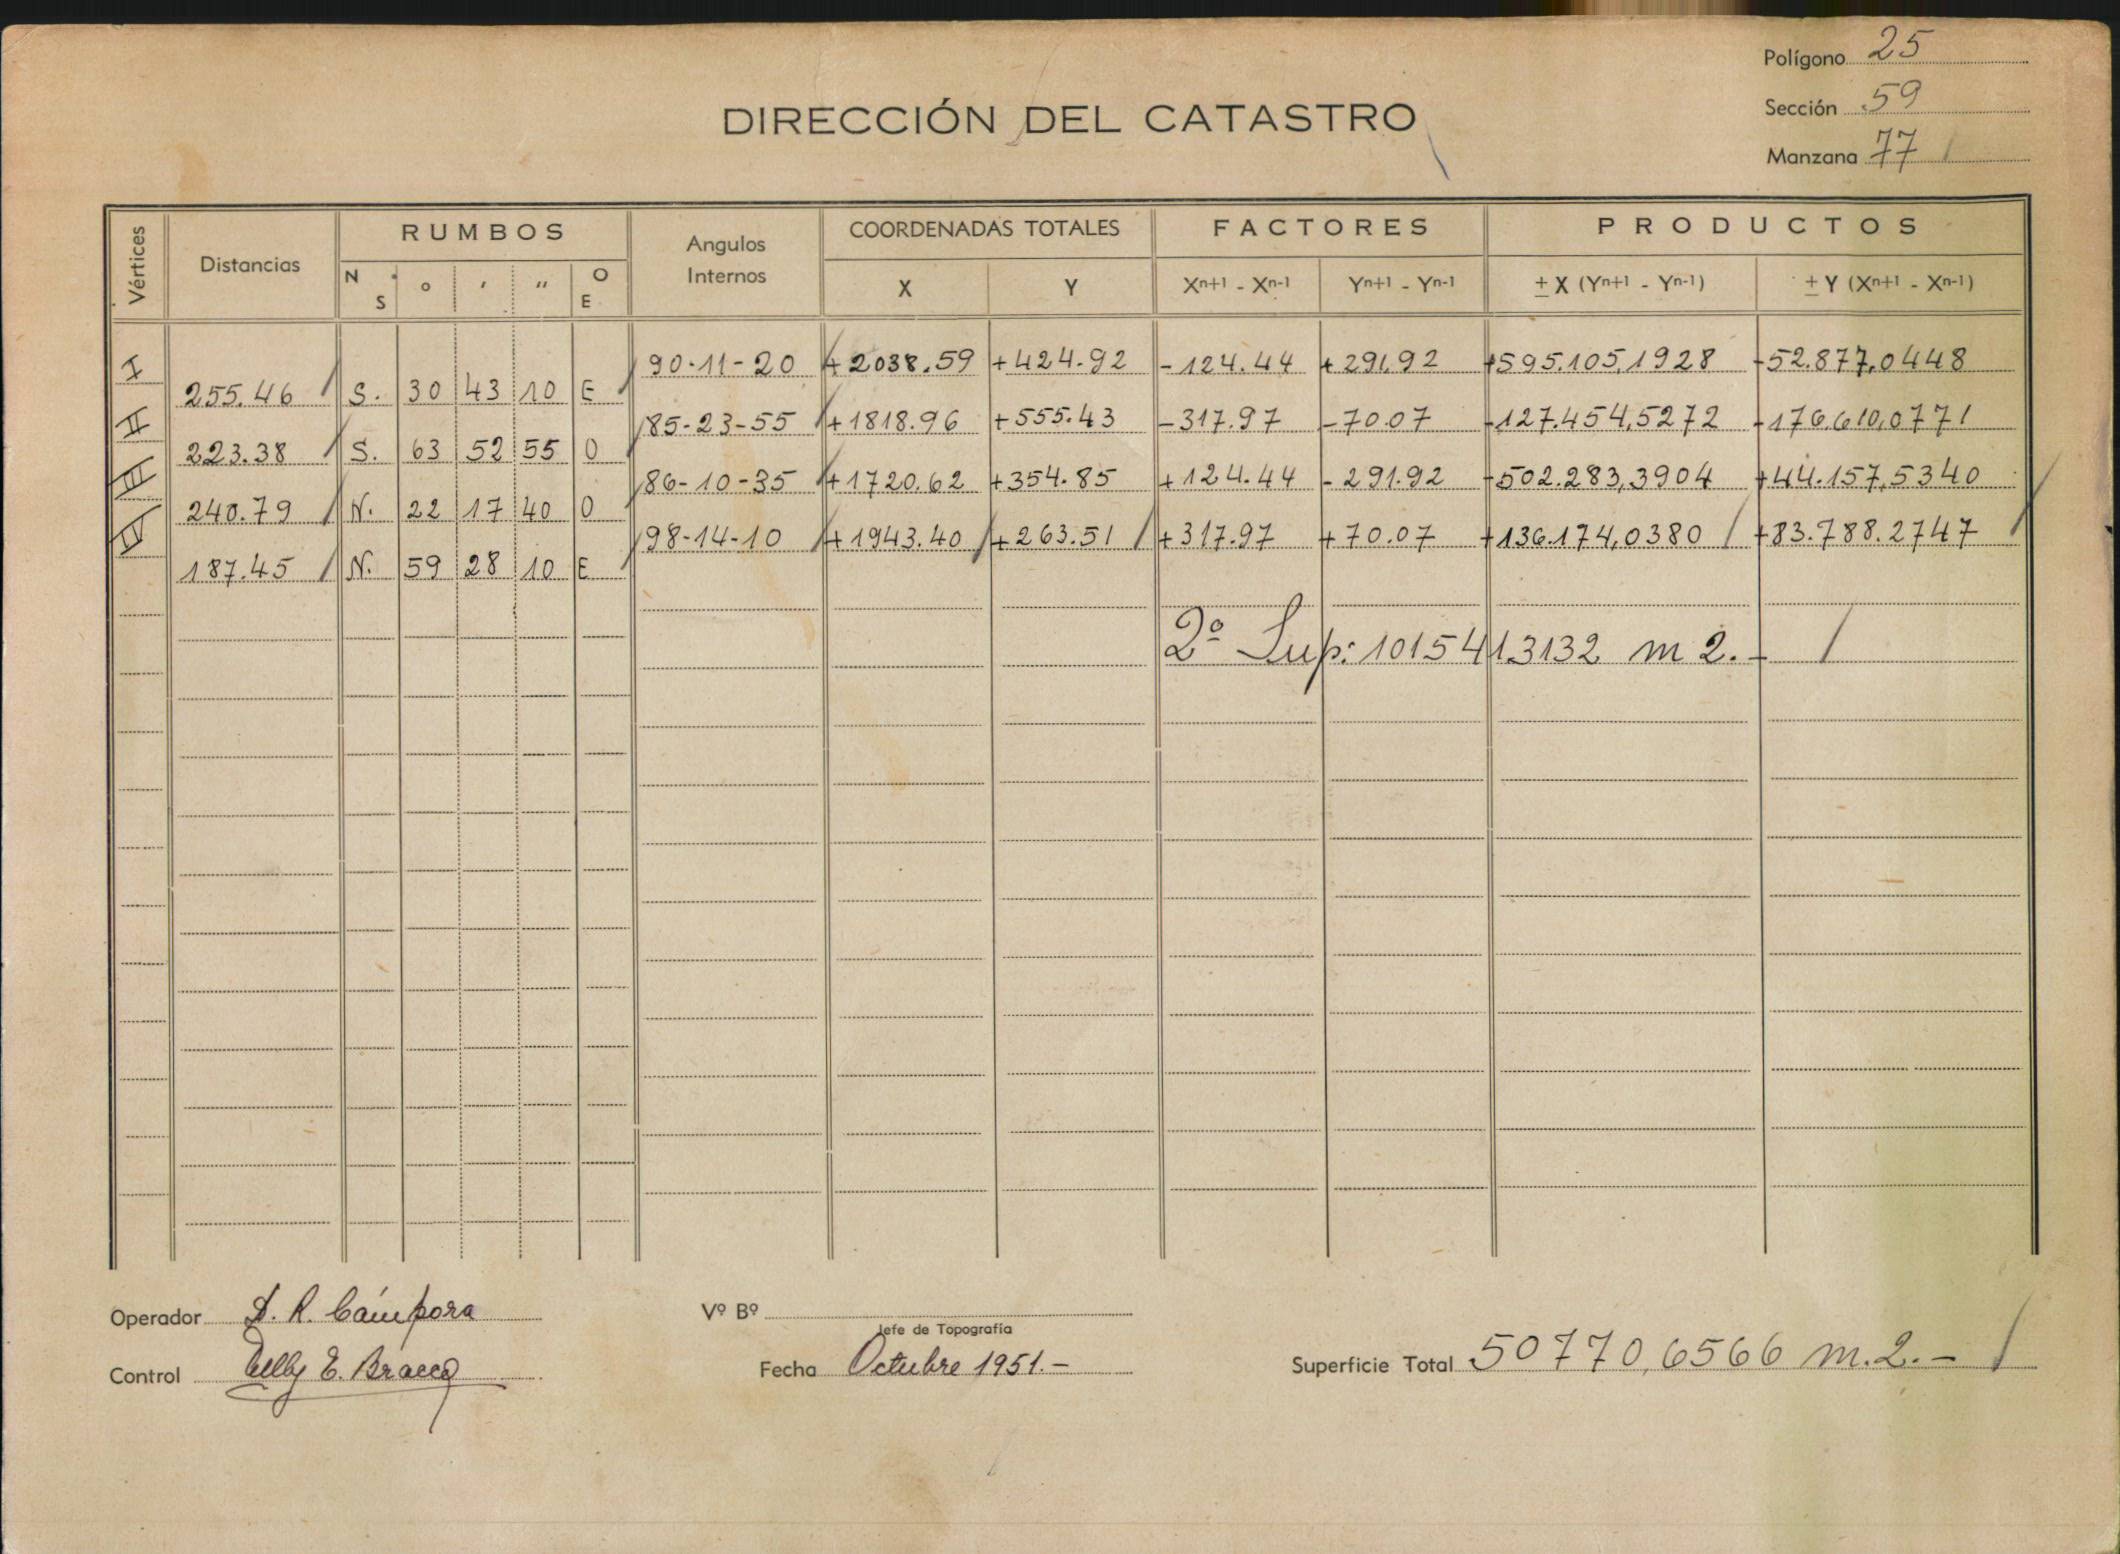 Polígono 25
DIRECCIÓN DEL CATASTRO
Sección 59
Manzana 77
Vértices Distancias RUMBOS Angulos Internos COORDENADAS TOTALES FACTORES PRODUCTOS
N S ° ' " O E X Y Xn+1 - Xn-1 Yn+1 - Yn-1 ± X (Yn+1 - Yn-1) ± Y (Xn+1 - Xn-1)
I 90-11-20 +2038.59 +424.92 -124.44 +291.92 +595.105,1928 -52.877,0448
255.46 S. 30 43 10 E
II 85-23-55 +1818.96 +555.43 -317.97 -70.07 -127.454,5272 -176.610,0771
223.38 S. 63 52 55 O
III 86-10-35 +1720.62 +354.85 +124.44 -291.92 -502.283,3904 +44.157,5340
240.79 N. 22 17 40 O
IV 98-14-10 +1943.40 +263.51 +317.97 +70.07 +136.174,0380 +83.788.2747
187.45 N. 59 28 10 E
2º Sup: 1015413132 m 2.-
Operador D. R. Cámpora Vº Bº
Jefe de Topografía
Control Nelly E. Bracco Fecha Octubre 1951.- Superficie Total 50770,6566 m.2.-